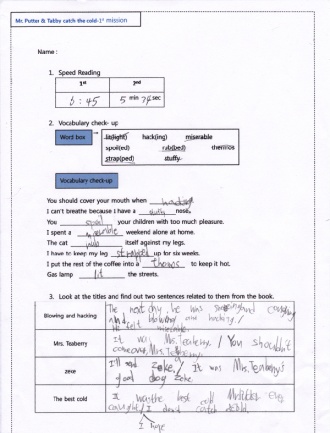 Mr. Putter & Tabby catch the cold-1st mission
Name :
1. Speed Reading
1st 2nd
5 : 45 5 min 74 sec
2. Vocabulary check- up
Word box
lit(light) hack(ing) miserable
spoil(ed) rub(bed) thermos
strap(ped) stuffy
Vocabulary check-up
You should cover your mouth when hacking
I can't breathe because I have a stuffy nose.
You spoil your children with too much pleasure.
I spent a miserable weekend alone at home.
The cat rub itself against my legs.
I have to keep my leg strapped up for six weeks.
I put the rest of the coffee into a thermos to keep it hot.
Gas lamp lit the streets.
3. Look at the titles and find out two sentences related to them from the book.
Blowing and hacking
The next day, he was sneezing and coughing
and blowing and hacking. /
He felt miserable.
Mrs. Teaberry
It was Mrs. Teaberry. / You shouldn't
come over, Mrs. Teaberry.
zeke
I'll send zeke. / It was Mrs. Teaberry's
good dog zeke.
The best cold
It was the best cold Mr. Putter ever
caught. / I don't catch colds.
I hope